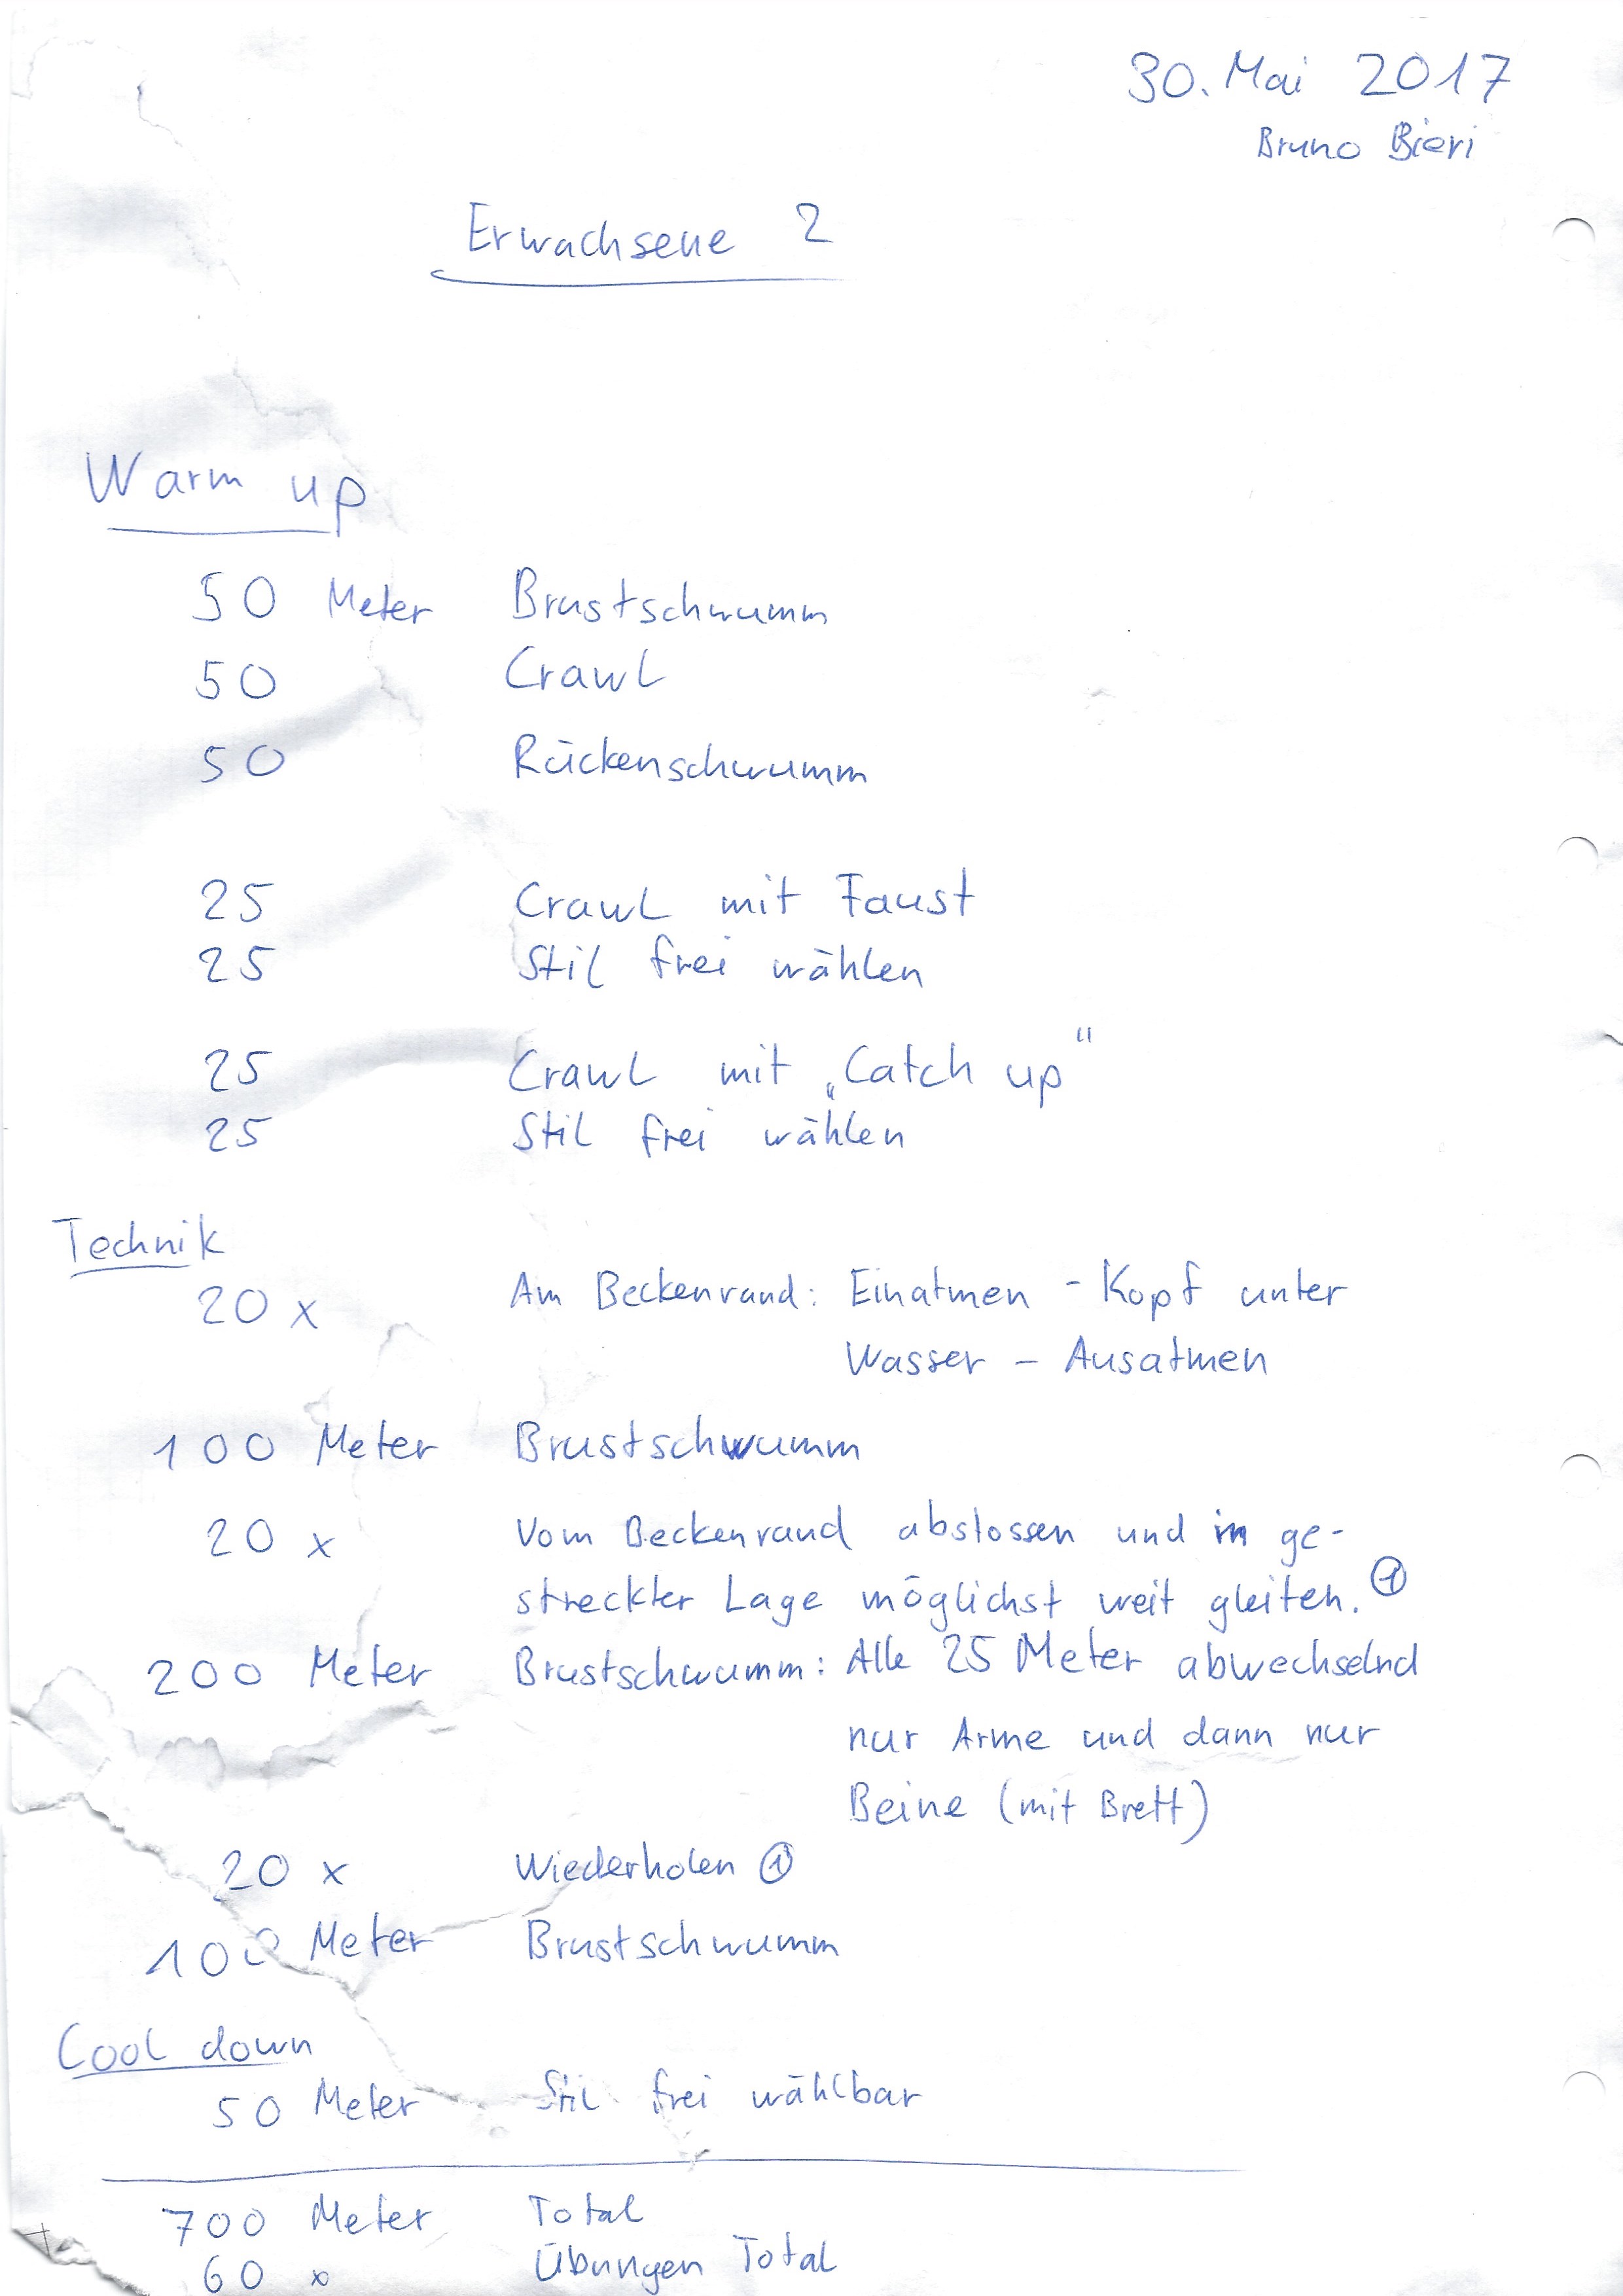 30. Mai 2017
Bruno Bieri
Erwachsene 2
Warm up
50 Meter Brustschwumm
50 Crawl
50 Rückenschwumm
25 Crawl mit Faust
25 Stil frei wählen
25 Crawl mit „Catch up“
25 Stil frei wählen
Technik
20 x Am Beckenrand: Einatmen - Kopf unter
Wasser – Ausatmen
100 Meter Brustschwumm
20 x Vom Beckenrand abstossen und in ge-
streckter Lage möglichst weit gleiten. ①
200 Meter Brustschwumm: Alle 25 Meter abwechselnd
nur Arme und dann nur
Beine (mit Brett)
20 x Wiederholen ①
100 Meter Brustschwumm
Cool down
50 Meter Stil frei wählbar
700 Meter Total
60 x Übungen Total